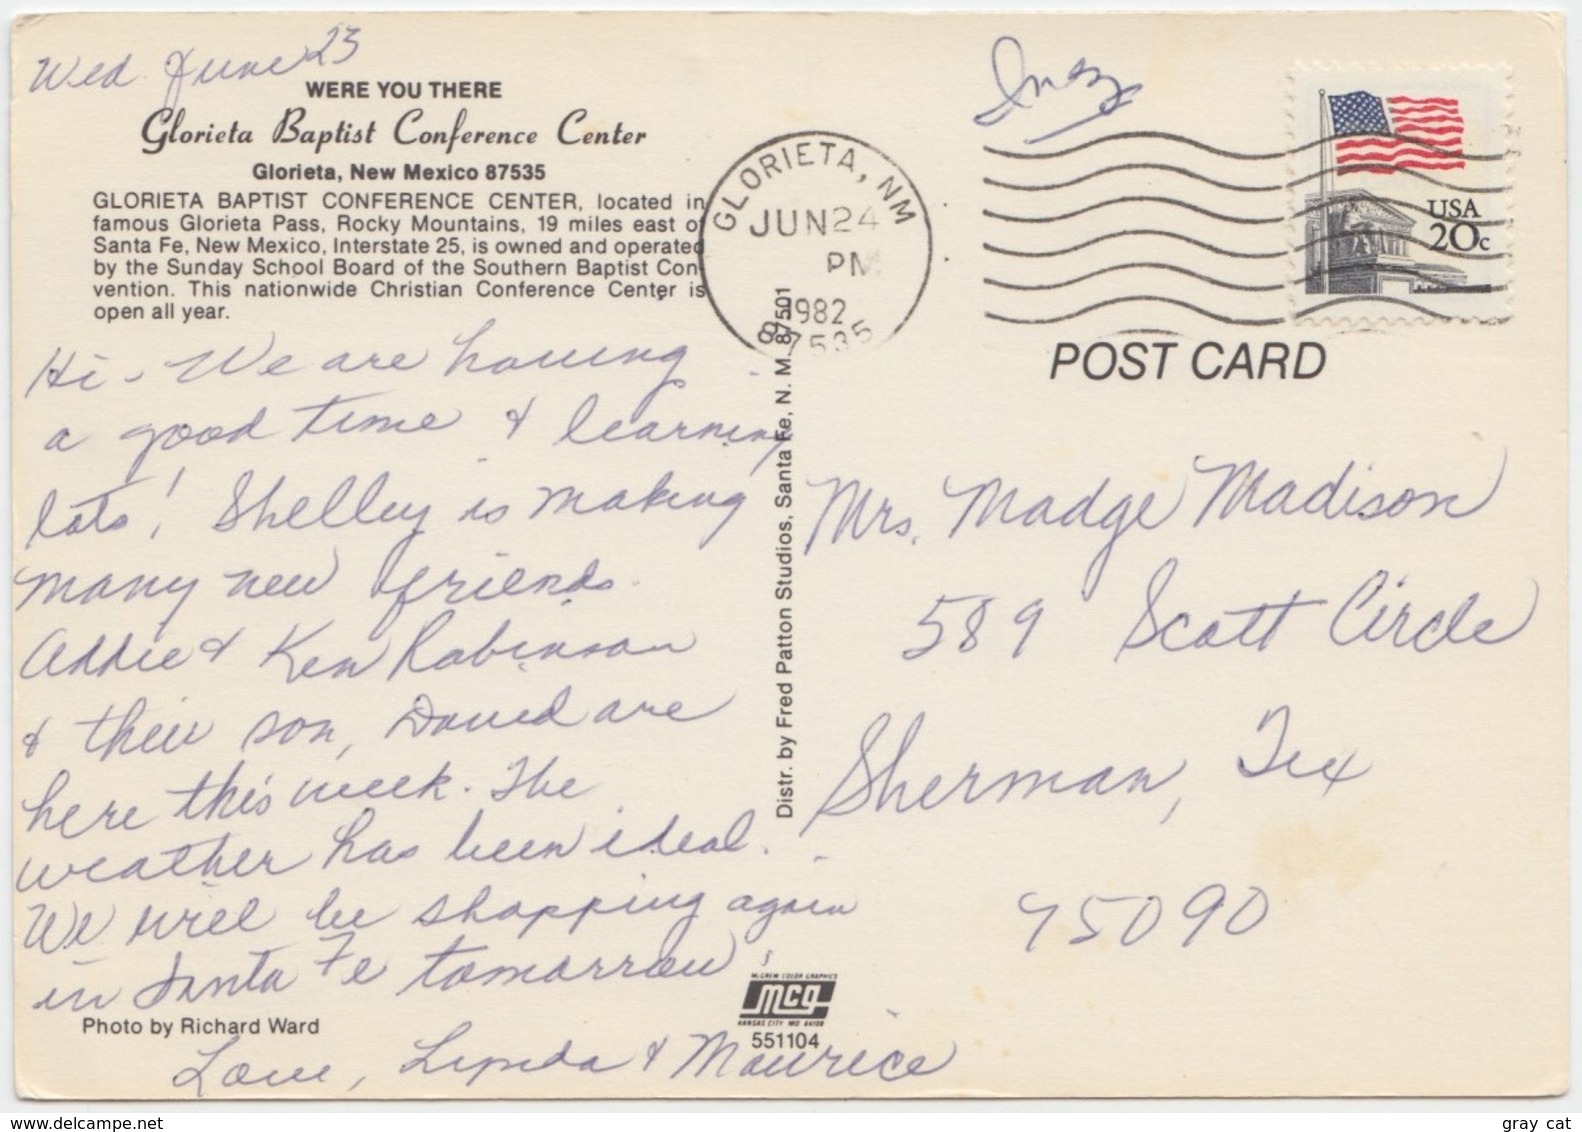 Wed June 23
WERE YOU THERE
Glorieta Baptist Conference Center
Glorieta, New Mexico 87535
GLORIETA BAPTIST CONFERENCE CENTER, located in
famous Glorieta Pass, Rocky Mountains, 19 miles east of
Santa Fe, New Mexico, Interstate 25, is owned and operated
by the Sunday School Board of the Southern Baptist Con-
vention. This nationwide Christian Conference Center is
open all year.
Hi - We are having
a good time & learning
lots! Shelley is making
many new friends.
Addie & Ken Robinson
& their son, David are
here this week. The
weather has been ideal.
We will be shopping again
in Santa Fe tomorrow.
Photo by Richard Ward
Love, Lynda & Maurice
GLORIETA, NM
JUN 24
PM
1982
87535
Distr. by Fred Patton Studios, Santa Fe, N. M. 87501
McGREW COLOR GRAPHICS
mcg
KANSAS CITY MO 64108
551104
Inez
USA
20c
POST CARD
Mrs. Madge Madison
589 Scott Circle
Sherman, Tex
75090
gray cat